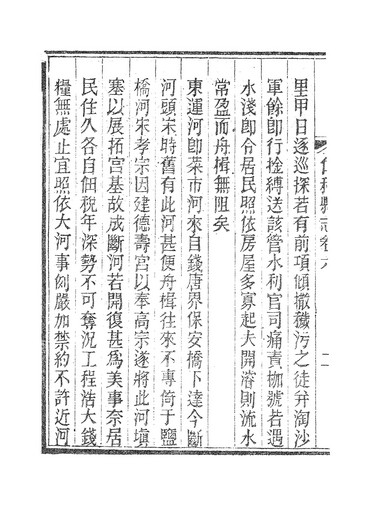 仁和縣志卷六
二
里甲日逐巡探若有前項傾撒穢污之徒幷淘沙
軍餘卽行拴縛送該管水利官司痛責枷號若遇
水淺卽令居民照依房屋多寡起夫開濬則流水
常盈而舟楫無阻矣
東運河卽菜市河來自錢唐界保安橋下達今斷
河頭宋時舊有此河甚便舟楫往來不專倚于鹽
橋河宋孝宗因建德壽宮以奉高宗遂將此河塡
塞以展拓宮基故成斷河若開復甚爲美事奈居
民住久各自佃稅年深勢不可奪況工程浩大錢
糧無處止宜照依大河事例嚴加禁約不許近河